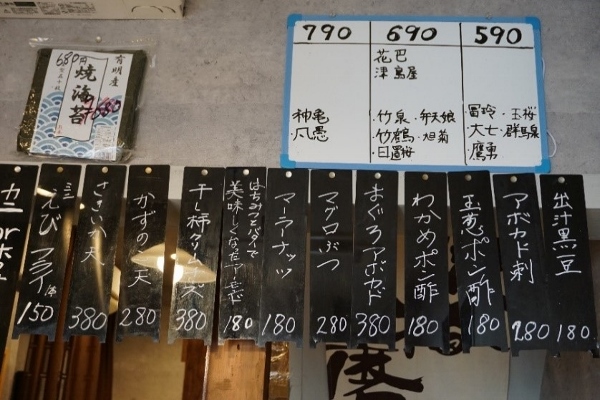 790
690
590
花巴
津島屋
神亀
凡愚
竹泉・弁天娘
竹鶴・旭菊
日置桜
冨玲・玉桜
大七・群馬泉
鷹勇
有明産
焼海苔
680円
出汁黒豆
180
アボカド刺
280
玉葱ポン酢
180
わかめポン酢
180
まぐろアボカド
380
マグロぶつ
280
マーアナッツ
180
はちみつとバターで
美味しくなった
180
干し柿クリームチーズ
380
かずの天
280
ささいか天
380
ミニえびフライ
150
カニ